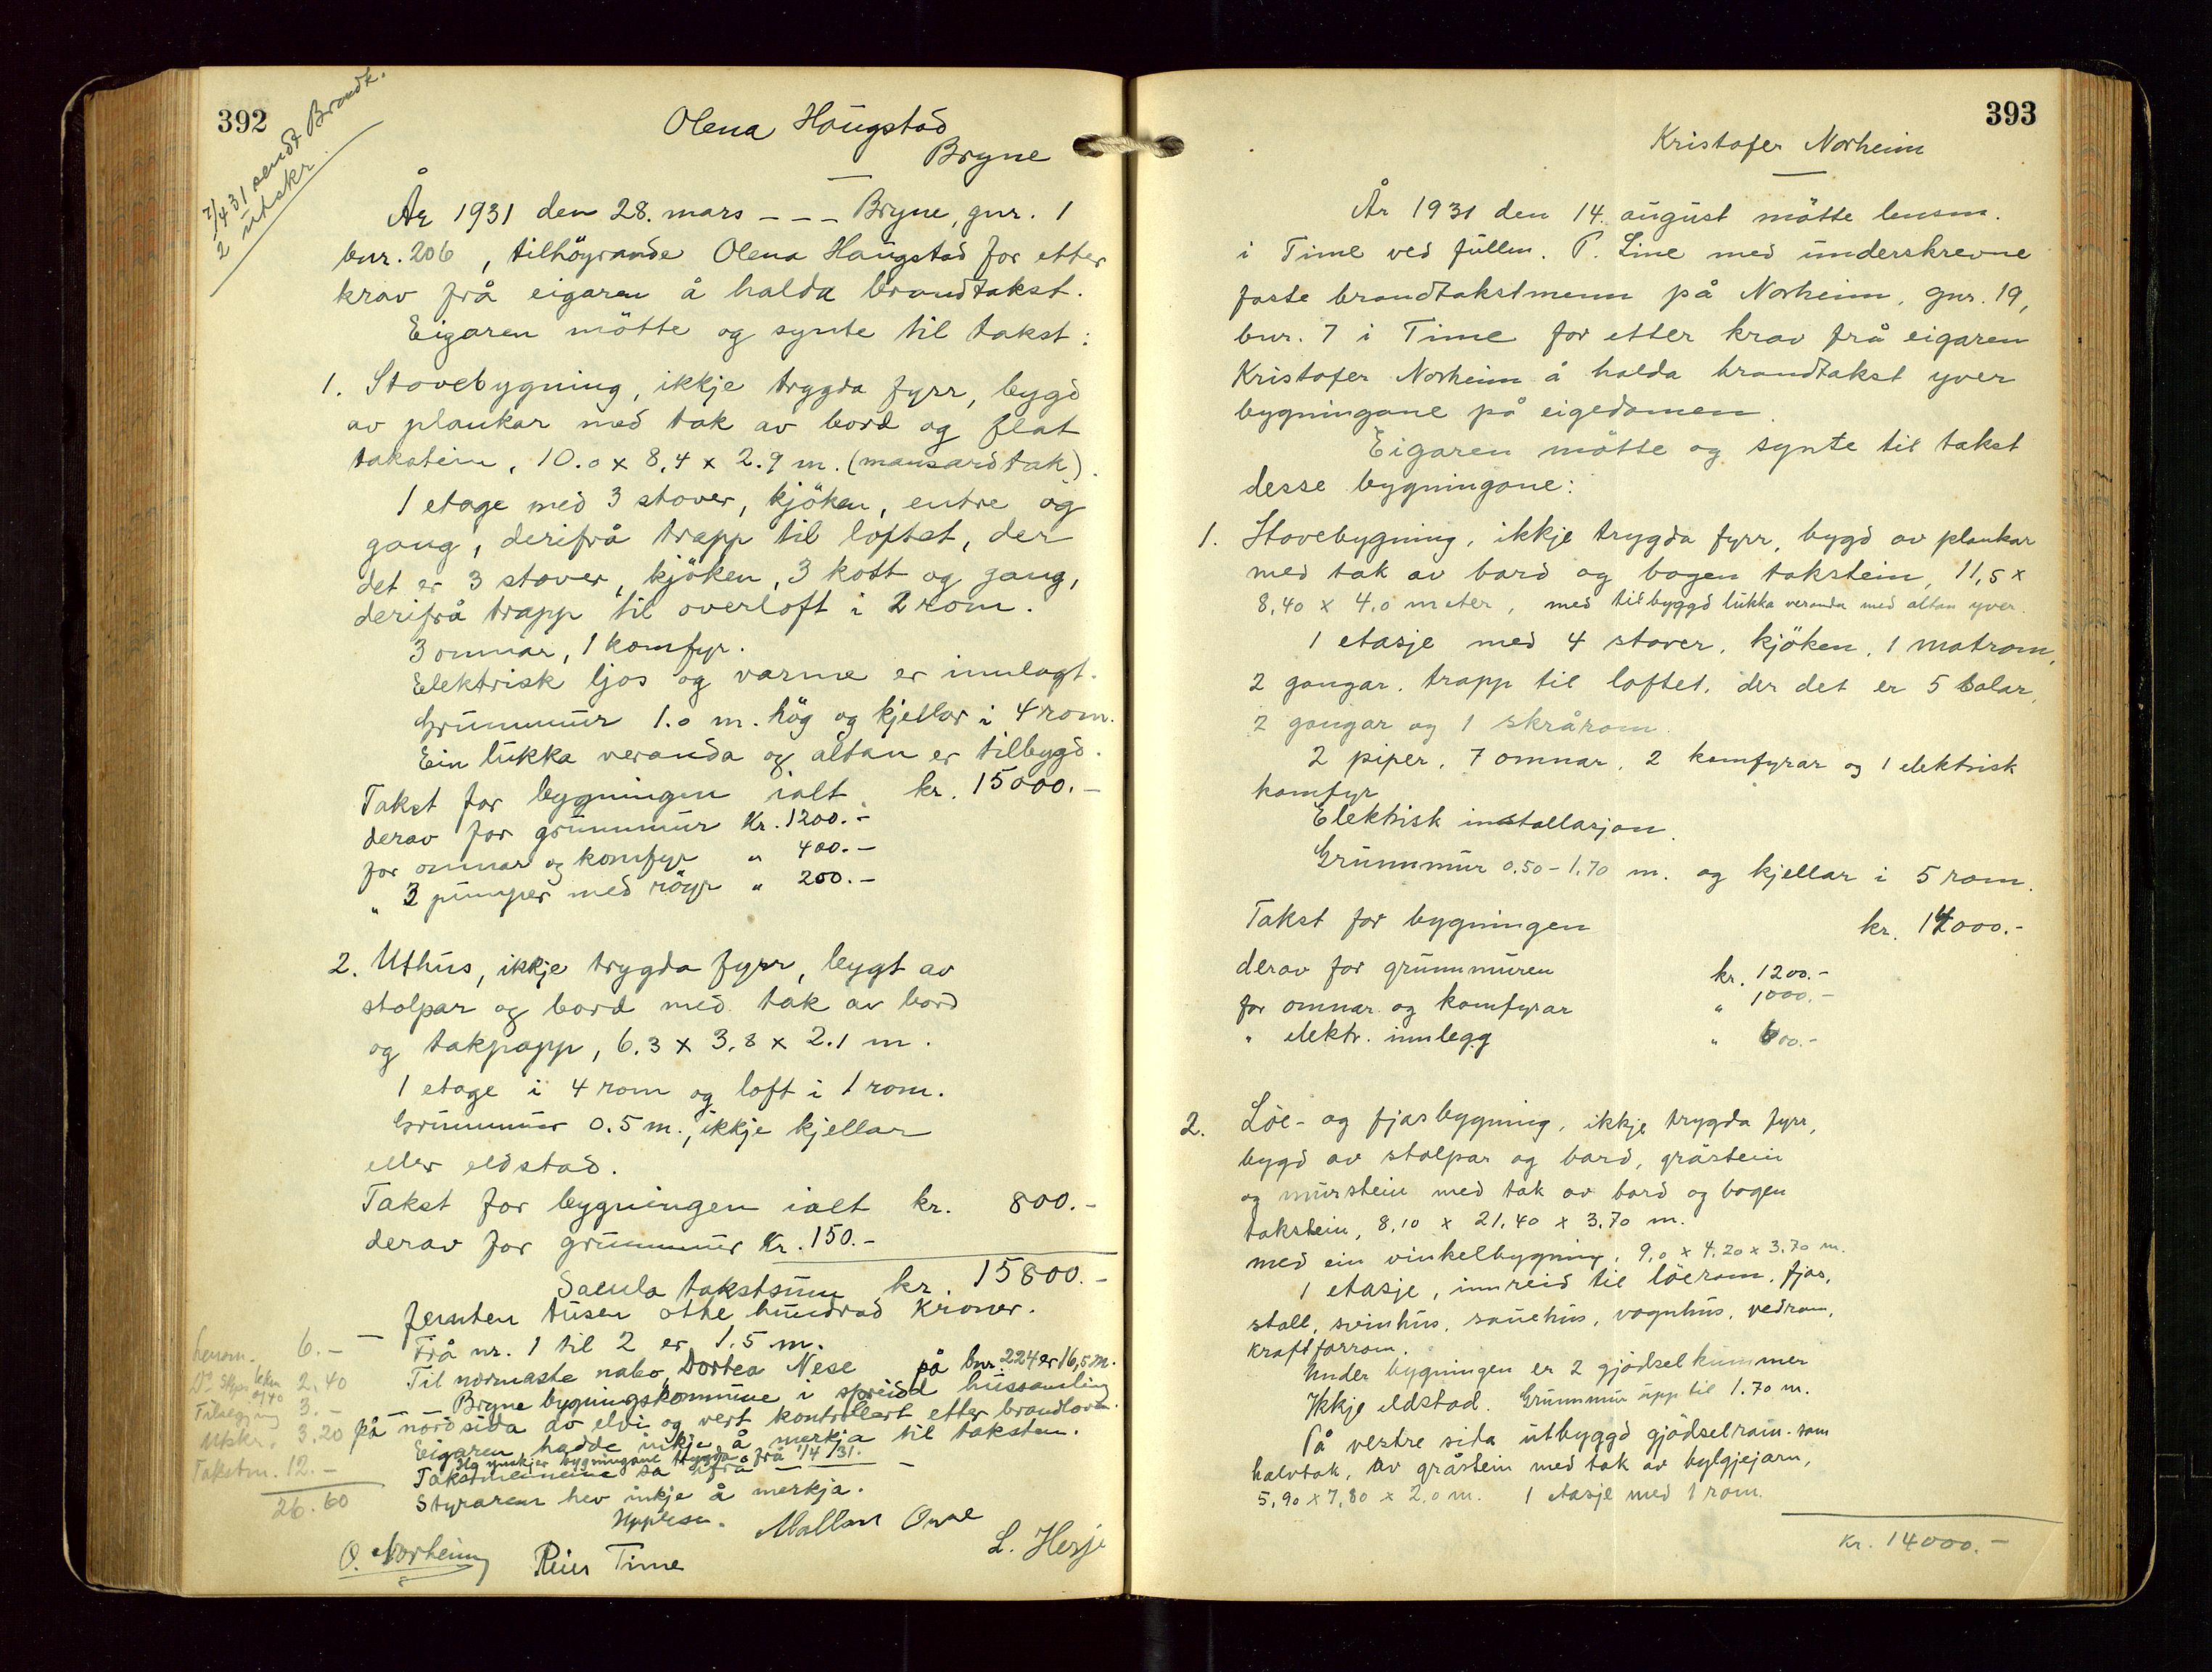 392
7/4 31 sendt Brandk.
2 utskr.
Olena Haugstad
Bryne
År 1931 den 28. mars - - - Bryne, gnr. 1
bnr. 206, tilhöyrande Olena Haugstad for etter
krav frå eigaren å halda brandtakst.
Eigaren mötte og synte til takst:
1. Stovebygning, ikkje trygda fyrr, bygd
av plankar med tak av bord og flat
takstein, 10.0 x 8,4 x 2.9 m. (mansardtak).
1 etage med 3 stover, kjöken, entre og
gang, derifrå trapp til loftet, der
det er 3 stover, kjöken, 3 kott og gang,
derifrå trapp til overloft i 2 rom.
3 omnar, 1 komfyr.
Elektrisk ljos og varme er innlagt.
Grunnmur 1.0 m. hög og kjellar i 4 rom.
Ein lukka veranda og altan er tilbygd.
Takst for bygningen ialt kr. 15000.-
derav for grunnmur Kr. 1200.-
for omnar og komfyr " 400.-
" 3 pumper med röyr " 200.-
2. Uthus, ikkje trygda fyrr, bygt av
stolpar og bord med tak av bord
og takpapp, 6.3 x 3.8 x 2.1 m.
1 etage i 4 rom og loft i 1 rom.
Grunnmur 0.5 m., ikkje kjellar
eller eldstad.
Takst for bygningen ialt kr. 800.-
derav for grunnmur Kr. 150.-
Samla takstsum kr. 15800.-
femten tusen åtte hundrad Kroner.
Frå nr. 1 til 2 er 1.5 m.
Til nærmaste nabo, Dortea Nese på bnr. 224 er 16,5 m.
Bryne bygningskommune i spreidd hussamling
på nordsida av elvi og vert kontrollert etter brandlova.
Eigaren hadde inkje å merkja til taksten.
Ho ynskjer bygningane trygda frå 1/4 /31.
Takstmennene sa ifrå
Styraren hev inkje å merkja.
Upplese.
Lensm. 6.-
2,40
Tilsegjing 3.-
Utskr. 3.20
Takstm. 12.-
26.60
O. Norheim Reier Time L. Herje
393
Kristofer Norheim
År 1931 den 14. august mötte lensm.
i Time ved fullm. P. Line med underskrevne
faste brandtakstmenn på Norheim, gnr. 19,
bnr. 7 i Time for etter krav frå eigaren
Kristofer Norheim å halda brandtakst yver
bygningane på eigedomen.
Eigaren mötte og synte til takst
desse bygningane:
1. Stovebygning, ikkje trygda fyrr, bygd av plankar
med tak av bord og bogen takstein, 11,5 x
8,40 x 4,0 meter, med tilbyggd lukka veranda med altan yver.
1 etasje med 4 stover, kjöken, 1 matrom,
2 gangar, trapp til loftet, der det er 5 salar,
2 gangar og 1 skrårom.
2 piper, 7 omnar, 2 komfyrar og 1 elektrisk
komfyr
Elektrisk installasjon.
Grunnmur 0.50 - 1.70 m. og kjellar i 5 rom.
Takst for bygningen kr. 14000.-
derav for grunnmuren kr. 1200.-
for omnar og komfyrar " 1000.-
" elektr. innlegg " 600.-
2. Löe- og fjosbygning, ikkje trygda fyrr,
bygd av stolpar og bord, gråstein
og murstein med tak av bord og bogen
takstein, 8,10 x 21,40 x 3,70 m.
med ein vinkelbygning, 9,0 x 4,20 x 3.70 m.
1 etasje, innreid til löerom, fjos,
stall, svinhus, sauehus, vognhus, vedrom,
kraftforrom.
Under bygningen er 2 gjödselkummer
Ikkje eldstad. Grunnmur upp til 1.70 m.
På vestre sida utbyggd gjödselrom som
halvtak, av gråstein med tak av bylgjejarn,
5,90 x 7,80 x 2,0 m. 1 etasje med 1 rom.
Kr. 14000.-